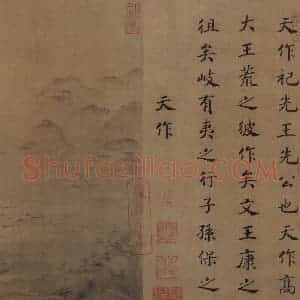 天作祀先王先公也天作高
大王荒之彼作矣文王康之
徂矣岐有夷之行子孫保之
天作
Shufaziliao.COM